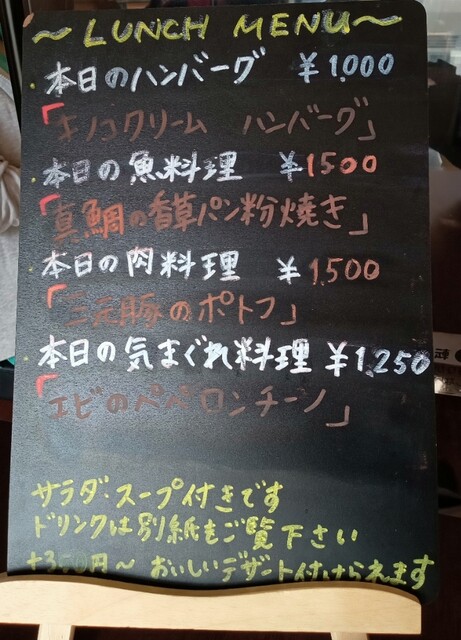 ～LUNCH MENU～
・本日のハンバーグ ￥1,000
「キノコクリーム ハンバーグ」
・本日の魚料理 ￥1500
「真鯛の香草パン粉焼き」
・本日の肉料理 ￥1,500
「三元豚のポトフ」
・本日の気まぐれ料理 ￥1,250
「エビのペペロンチーノ」
サラダ・スープ付きです
ドリンクは別紙もご覧下さい
+350円～ おいしいデザート付けられます